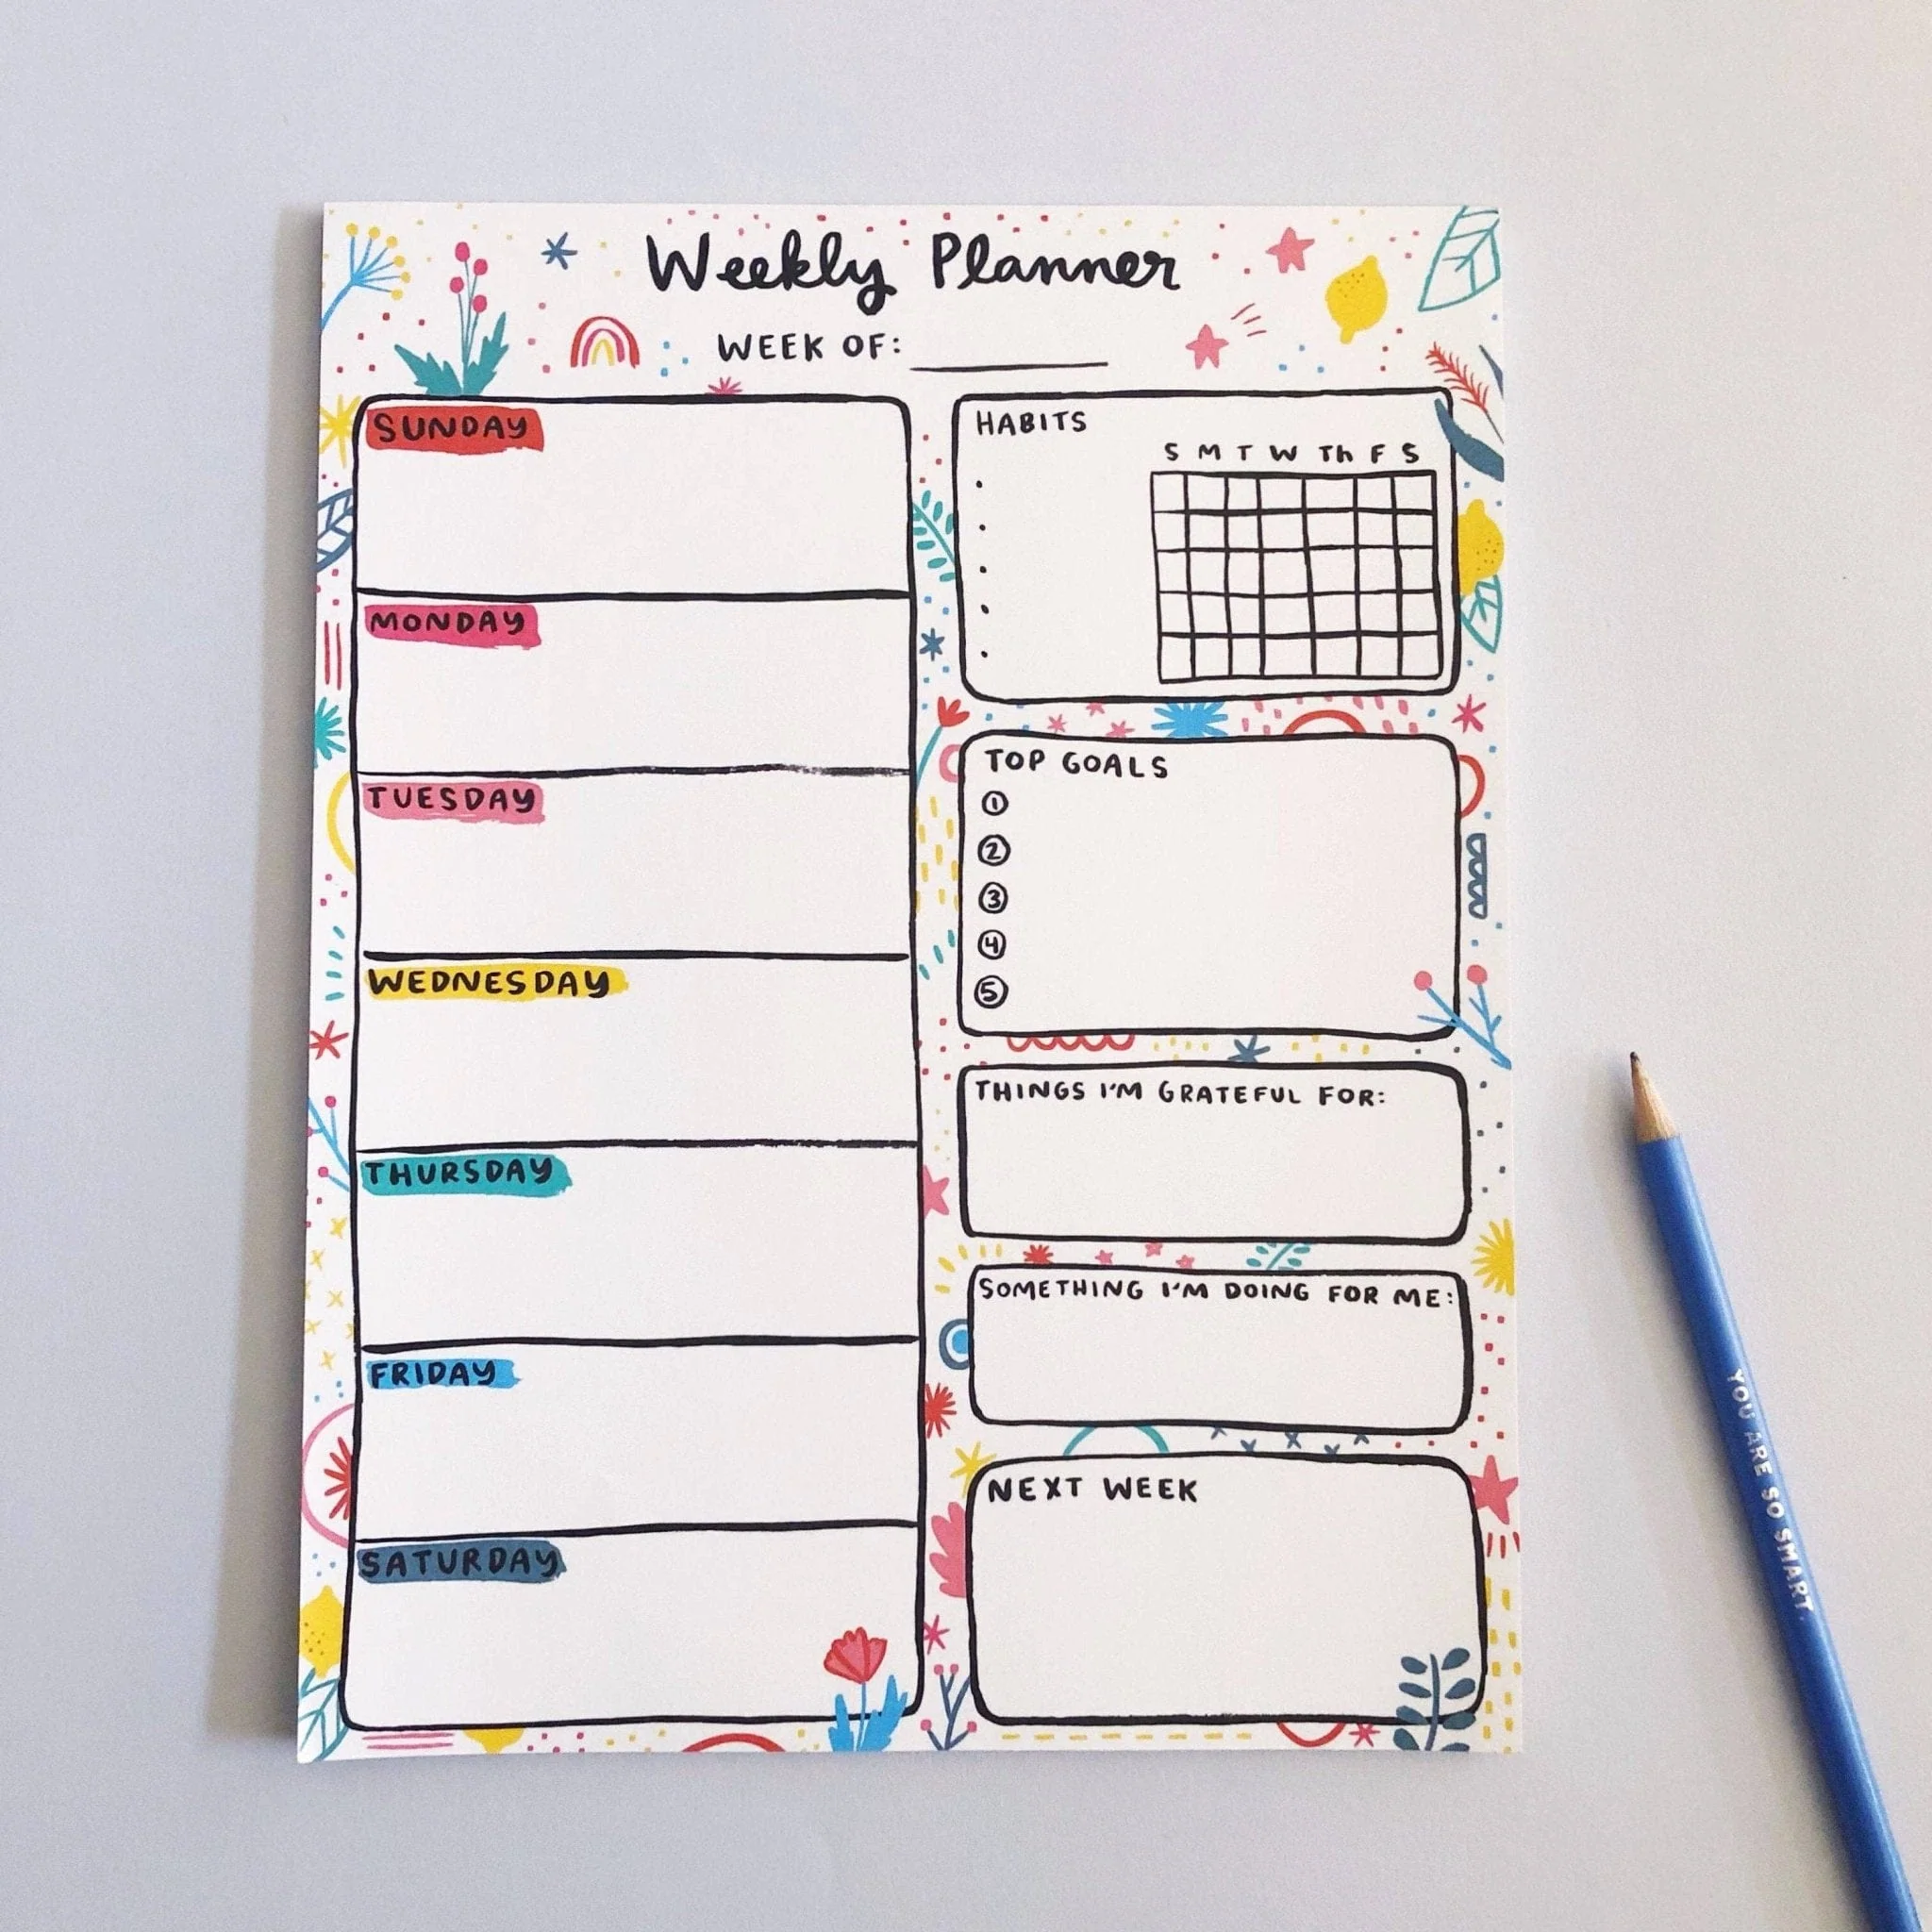 Weekly Planner
WEEK OF:
SUNDAY
MONDAY
TUESDAY
WEDNESDAY
THURSDAY
FRIDAY
SATURDAY
HABITS
S M T W Th F S
TOP GOALS
1
2
3
4
5
THINGS I'M GRATEFUL FOR:
SOMETHING I'M DOING FOR ME:
NEXT WEEK
YOU ARE SO SMART.